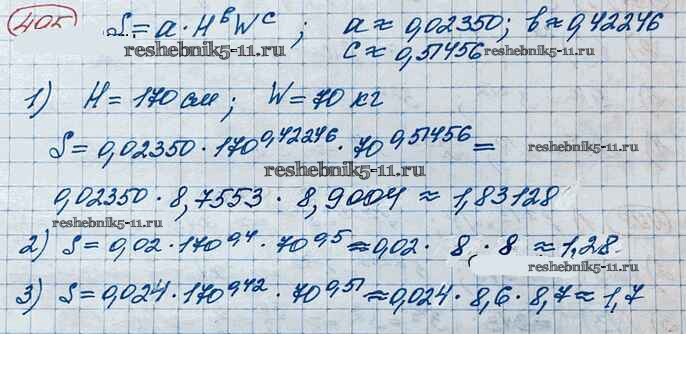 405 S = a · H^b W^c ; a ≈ 0,02350; b ≈ 0,42246
reshebnik5-11.ru c ≈ 0,51456
reshebnik5-11.ru
1) H = 170 см; W = 70 кг
S = 0,02350 · 170^0,42246 · 70^0,51456 = reshebnik5-11.ru
reshebnik5-11.ru
0,02350 · 8,7553 · 8,9004 ≈ 1,83128
reshebnik5-11.ru
2) S = 0,02 · 170^0,4 · 70^0,5 ≈ 0,02 · 8 · 8 ≈ 1,28.
reshebnik5-11.ru
3) S = 0,024 · 170^0,42 · 70^0,51 ≈ 0,024 · 8,6 · 8,7 ≈ 1,7